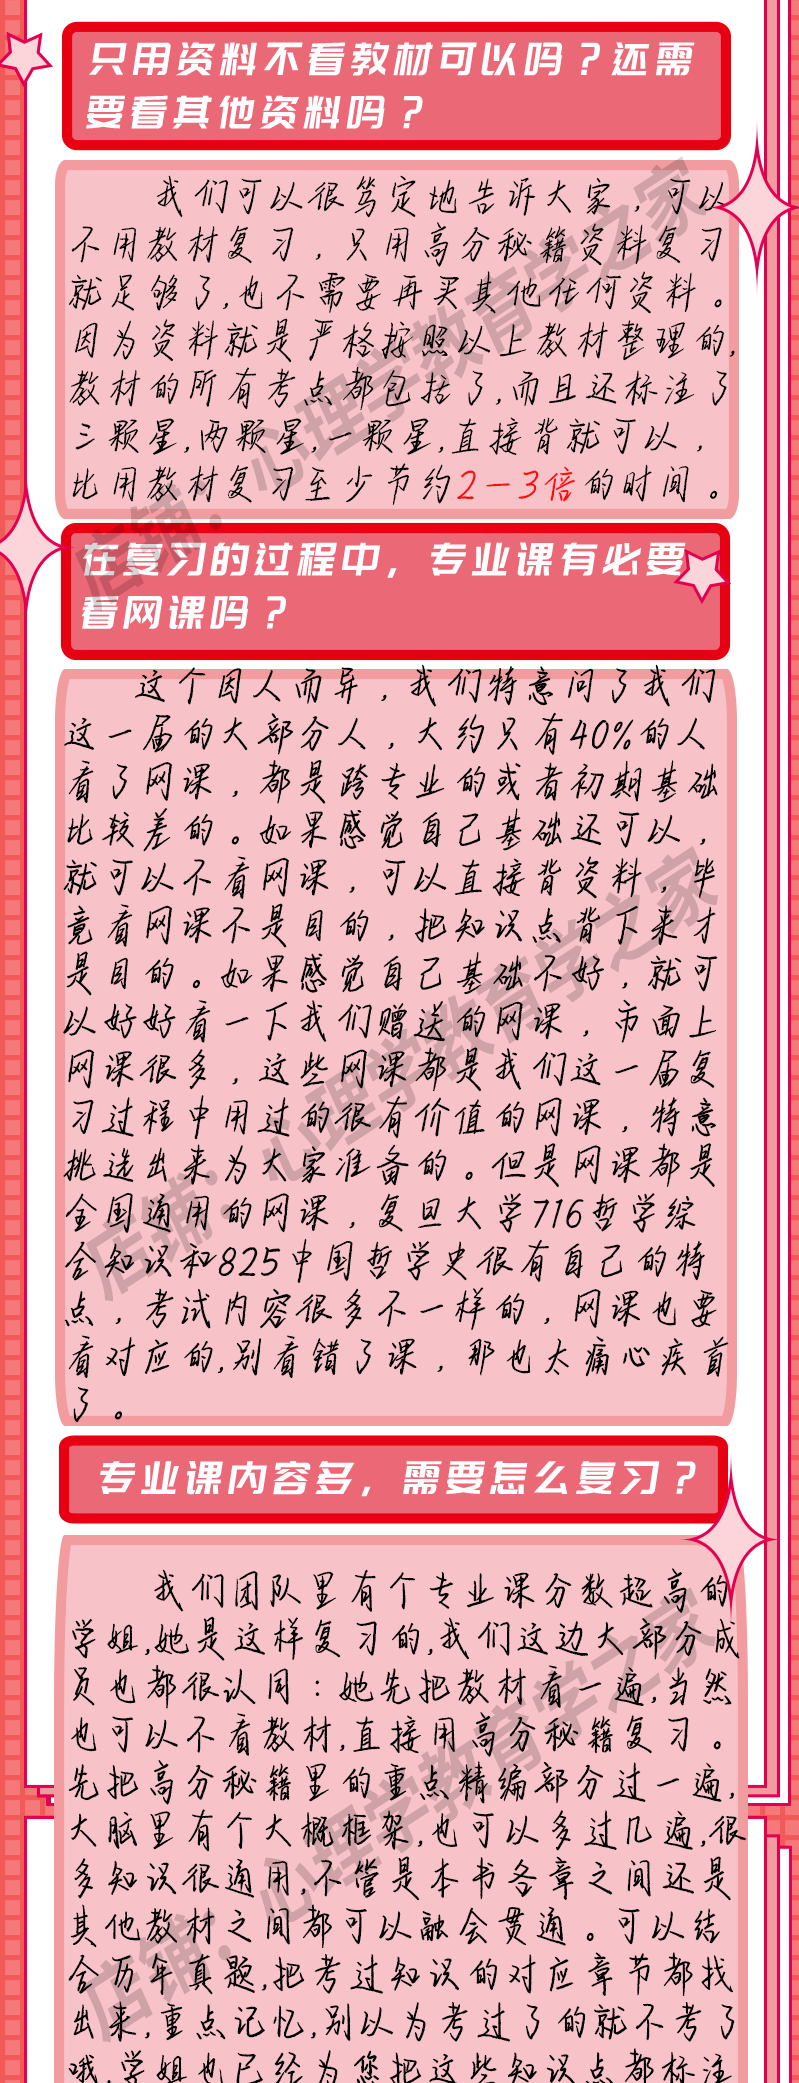 只用资料不看教材可以吗？还需
要看其他资料吗？
我们可以很笃定地告诉大家，可以
不用教材复习，只用高分秘籍资料复习
就足够了,也不需要再买其他任何资料。
因为资料就是严格按照以上教材整理的,
教材的所有考点都包括了,而且还标注了
三颗星,两颗星,一颗星,直接背就可以，
比用教材复习至少节约2-3倍的时间。
店铺：心理学教育学之家
在复习的过程中，专业课有必要
看网课吗？
这个因人而异，我们特意问了我们
这一届的大部分人，大约只有40%的人
看了网课，都是跨专业的或者初期基础
比较差的。如果感觉自己基础还可以，
就可以不看网课，可以直接背资料，毕
竟看网课不是目的，把知识点背下来才
是目的。如果感觉自己基础不好，就可
以好好看一下我们赠送的网课，市面上
网课很多，这些网课都是我们这一届复
习过程中用过的很有价值的网课，特意
挑选出来为大家准备的。但是网课都是
全国通用的网课，复旦大学716哲学综
合知识和825中国哲学史很有自己的特
点，考试内容很多不一样的，网课也要
看对应的,别看错了课，那也太痛心疾首
了。
店铺：心理学教育学之家
专业课内容多，需要怎么复习？
我们团队里有个专业课分数超高的
学姐,她是这样复习的,我们这边大部分成
员也都很认同：她先把教材看一遍,当然
也可以不看教材,直接用高分秘籍复习。
先把高分秘籍里的重点精编部分过一遍,
大脑里有个大概框架,也可以多过几遍,很
多知识很通用,不管是本书各章之间还是
其他教材之间都可以融会贯通。可以结
合历年真题,把考过知识的对应章节都找
出来,重点记忆,别以为考过了的就不考了
哦,学姐也已经为您把这些知识点都标注
店铺：心理学教育学之家